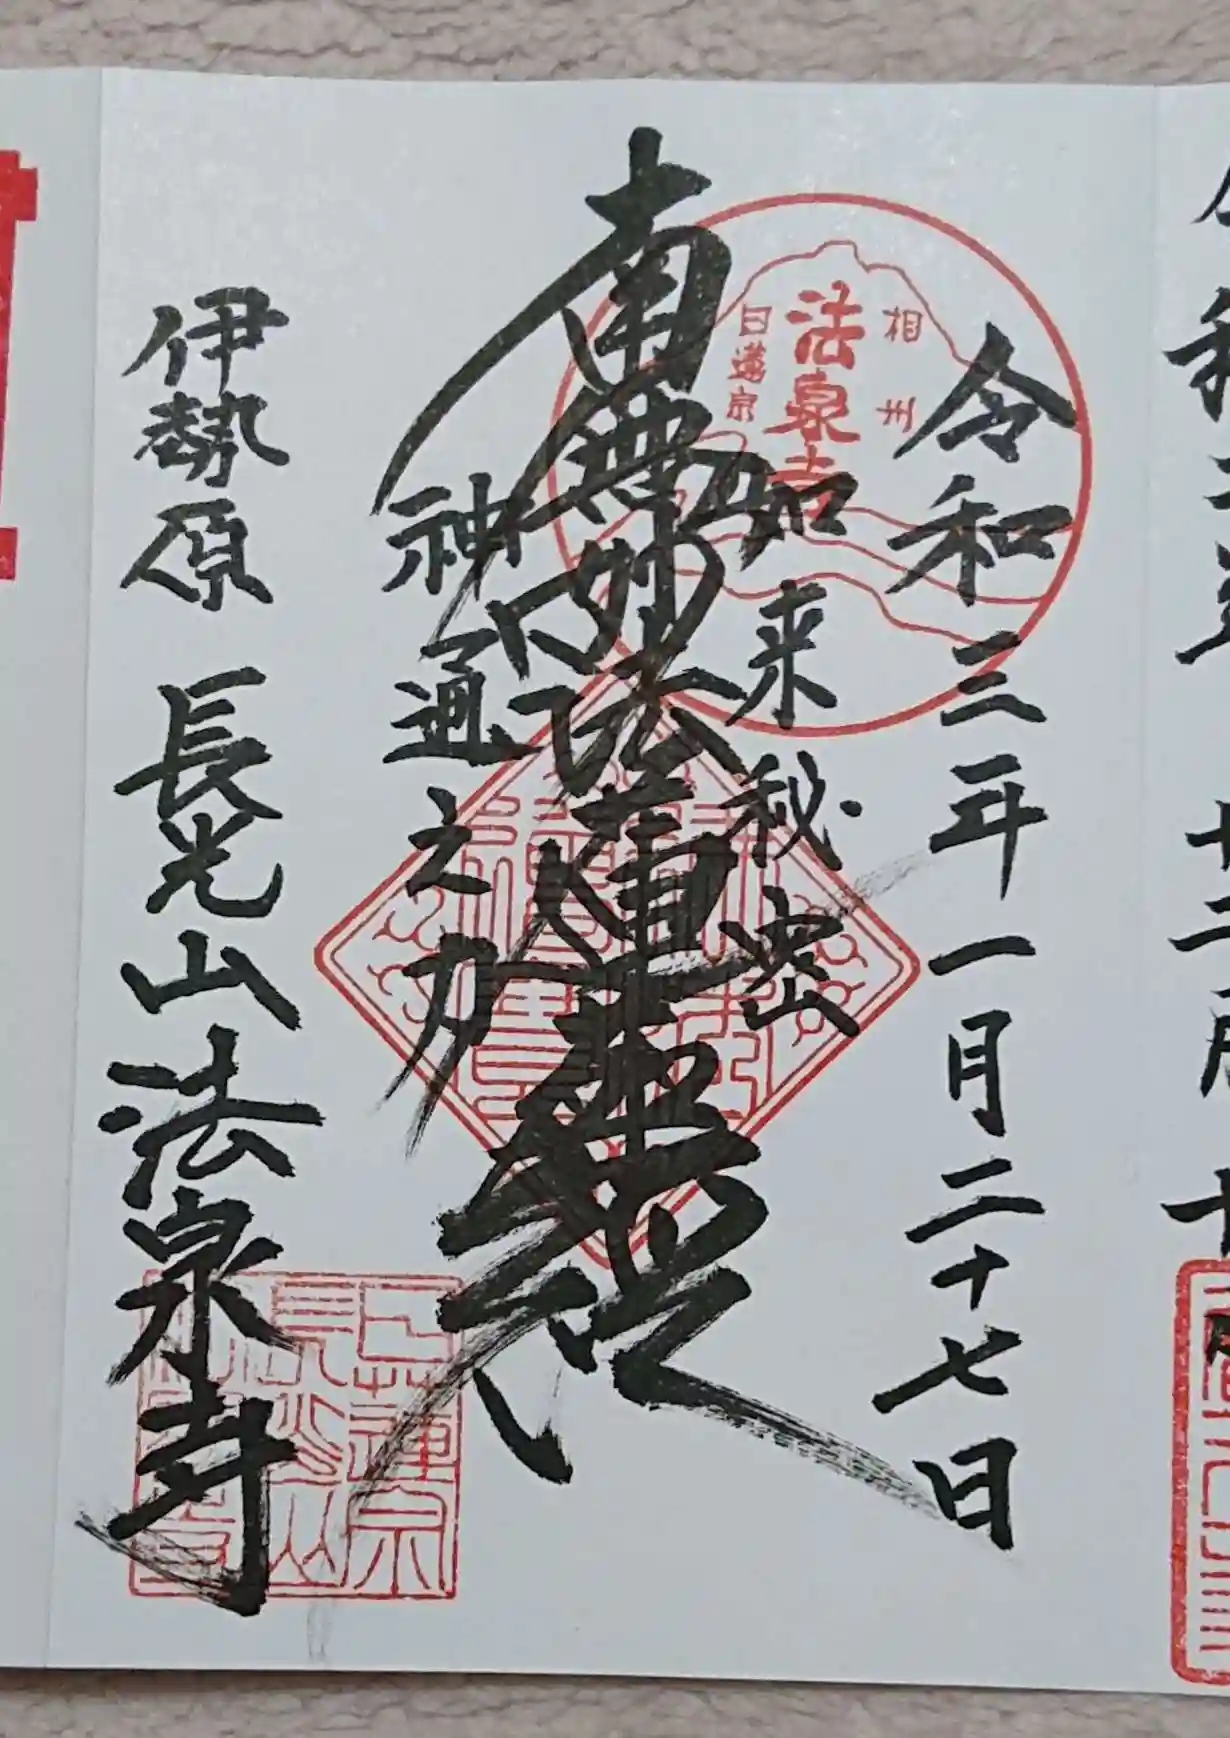 令和三年一月二十七日
相州
法泉寺
日蓮宗
如来秘密
南無妙法蓮華経
神通之力
伊勢原 長光山 法泉寺
日蓮宗
長光山
法泉寺